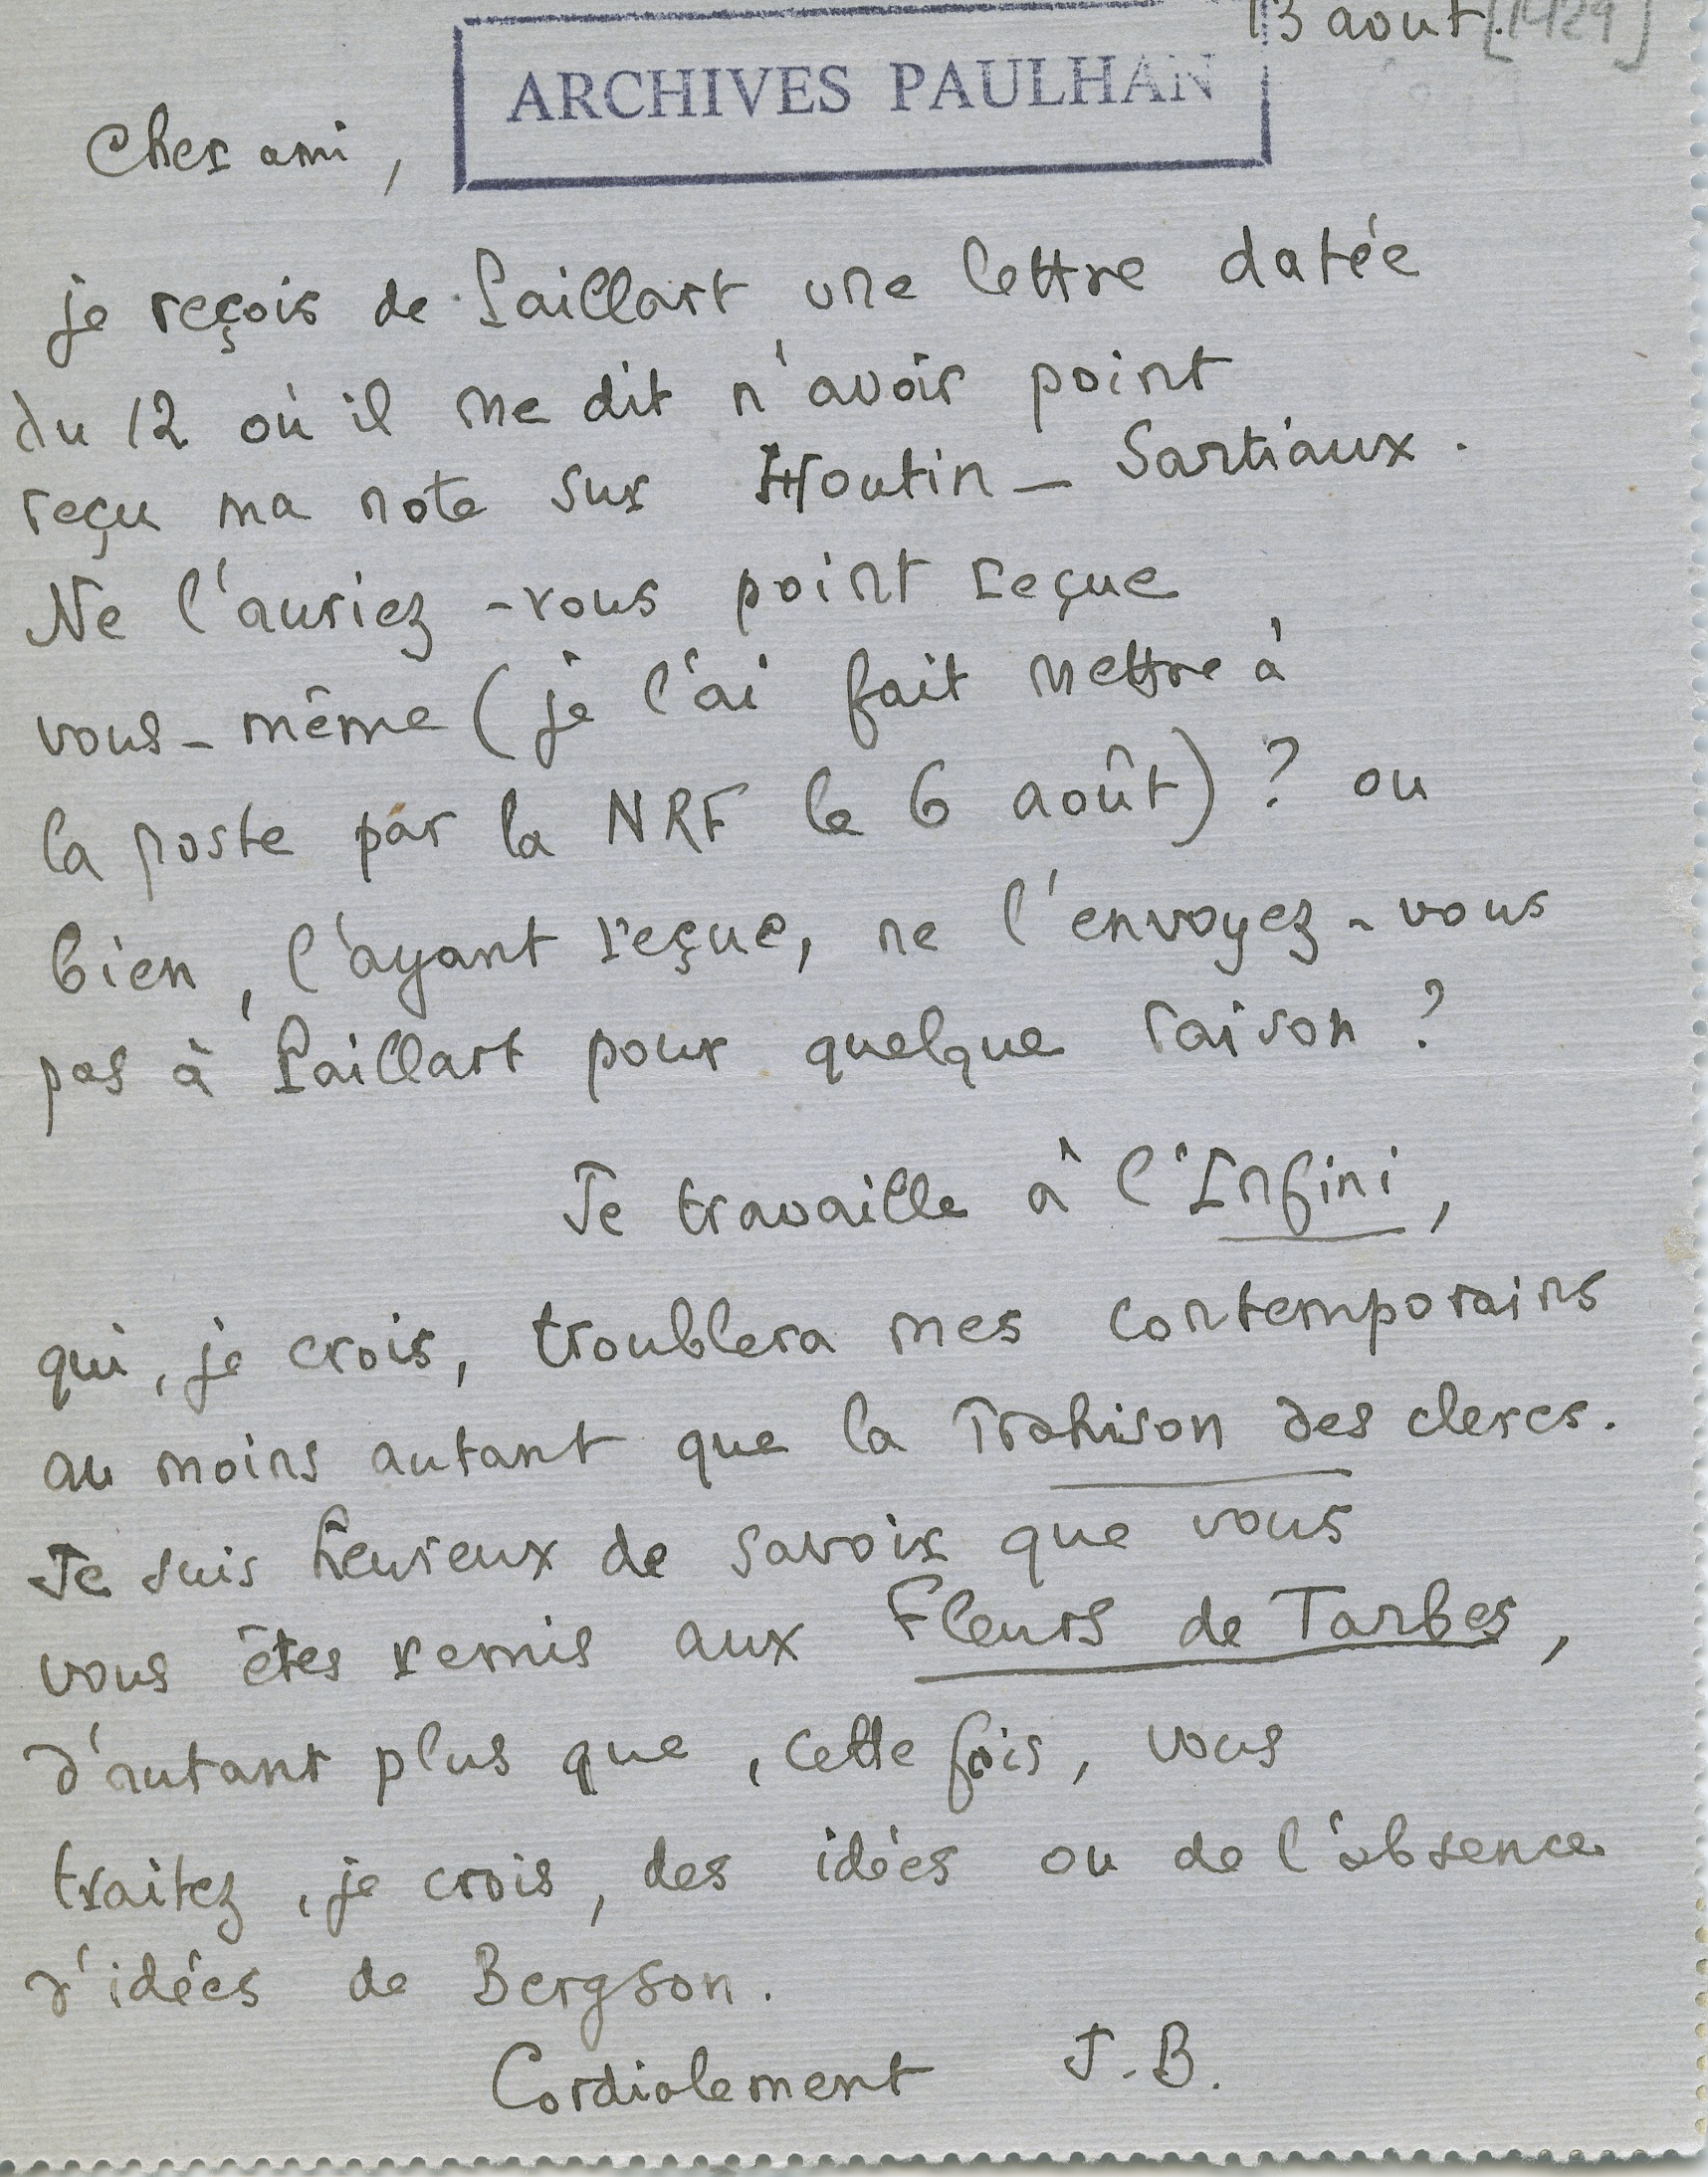 13 août. [1929]
ARCHIVES PAULHAN
Cher ami,
je reçois de Paillart une lettre datée
du 12 où il me dit n'avoir point
reçu ma note sur Houtin - Sartiaux.
Ne l'auriez-vous point reçue
vous-même (je l'ai fait mettre à
la poste par la NRF le 6 août) ? ou
bien, l'ayant reçue, ne l'envoyez-vous
pas à Paillart pour quelque raison ?
Je travaille à l'Infini,
qui, je crois, troublera mes contemporains
au moins autant que la Trahison des clercs.
Je suis heureux de savoir que vous
vous êtes remis aux Fleurs de Tarbes,
d'autant plus que, cette fois, vous
traitez, je crois, des idées ou de l'absence
d'idées de Bergson.
Cordialement J. B.